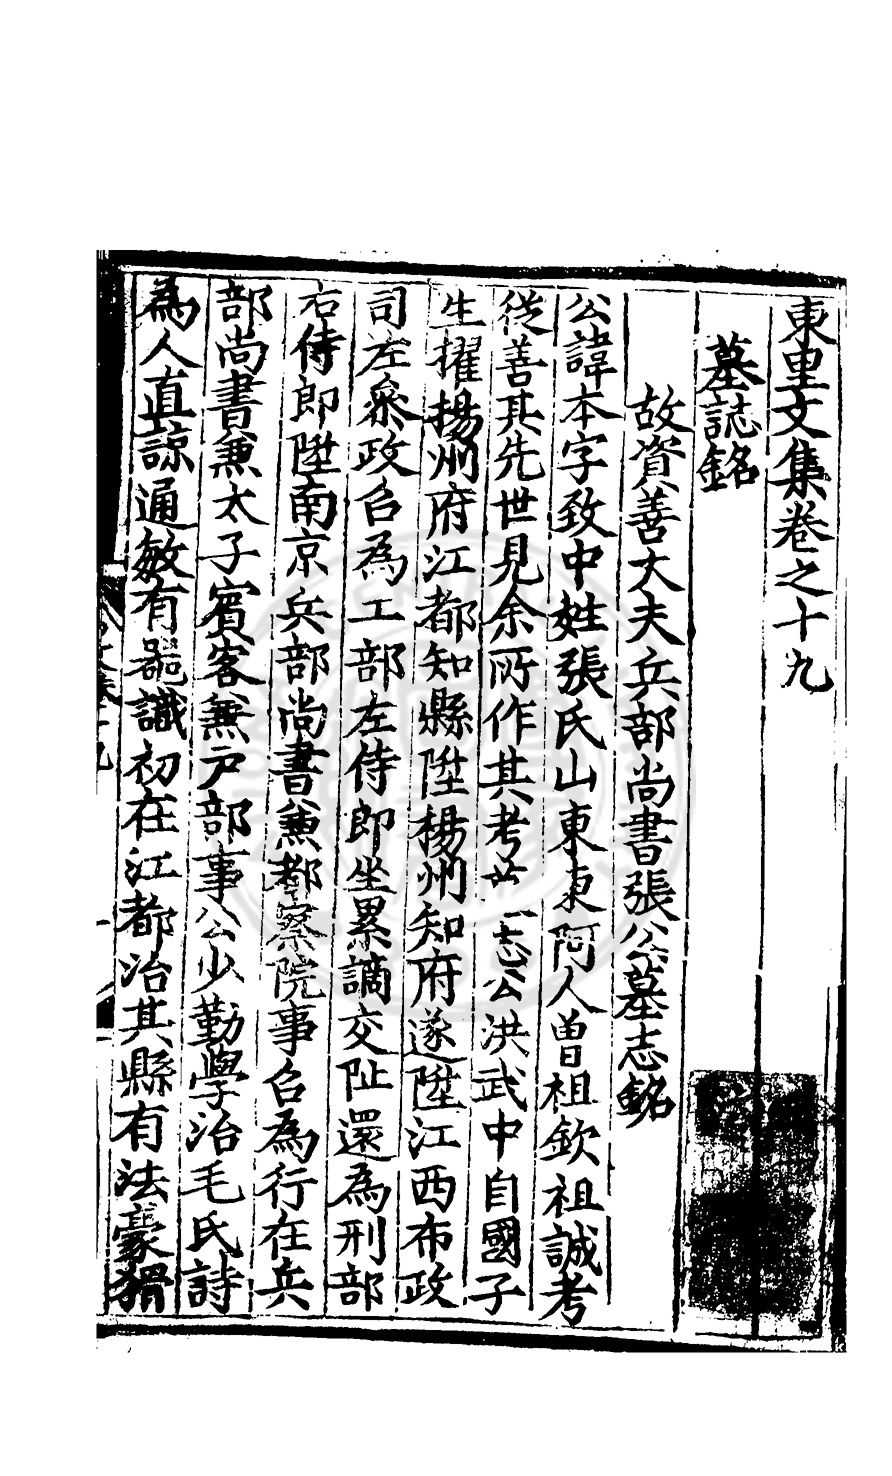 東里文集卷之十九
墓誌銘
故資善大夫兵部尚書張公墓志銘
公諱本字致中姓張氏山東東阿人曽祖欽祖誠考
從善其先世見余所作其考志公洪武中自國子
生擢揚州府江都知縣陞楊州知府遂陞江西布政
司左叅政召為工部左侍郎坐累謫交阯還為刑部
右侍郎陞南京兵部尚書兼都察院事召為行在兵
部尚書兼太子賓客兼户部事公少勤學治毛氏詩
為人直諒通敏有噐識初在江都治其縣有法豪猾